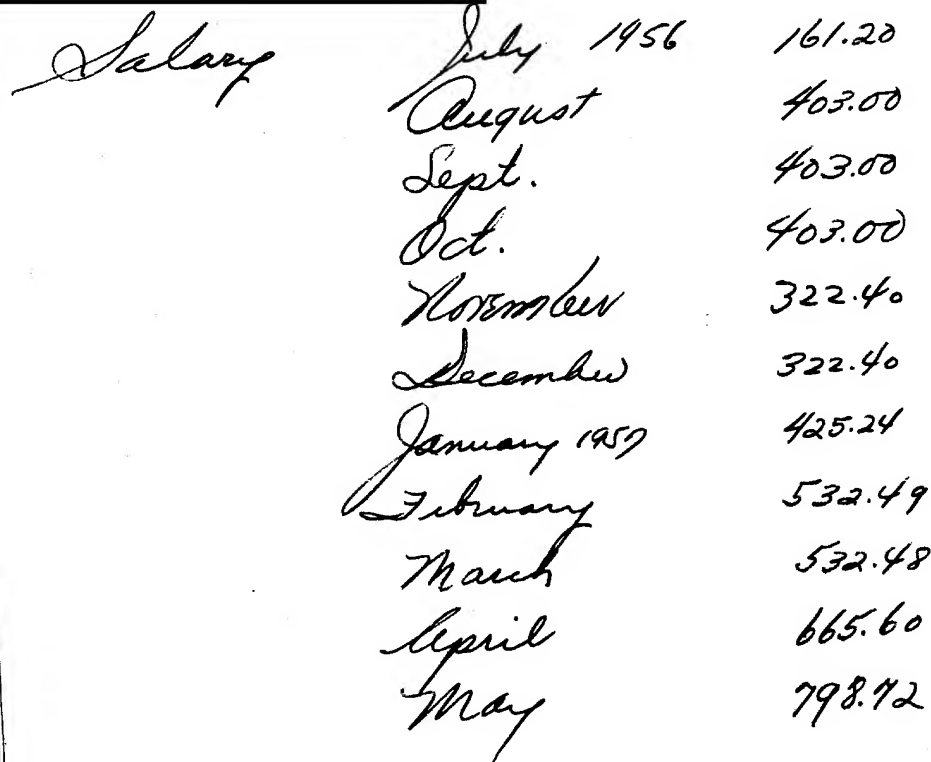 Salary July 1956 161.20
August 403.00
Sept. 403.00
Oct. 403.00
November 322.40
December 322.40
January 1957 425.24
February 532.49
March 532.48
April 665.60
May 798.72